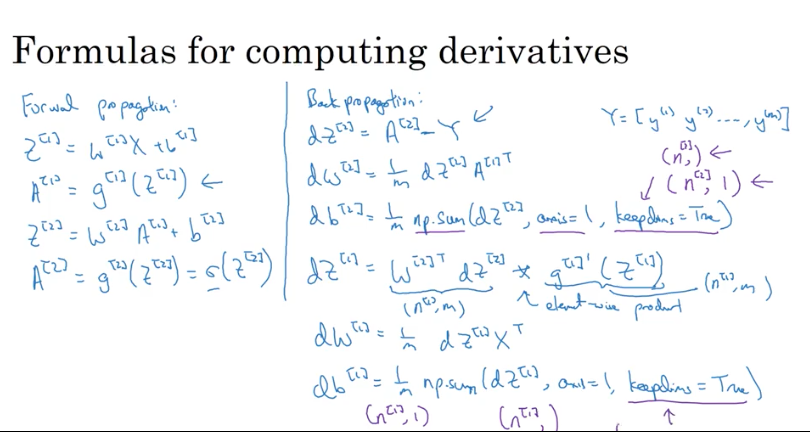 Formulas for computing derivatives
Forward propagation:
Z^[1] = W^[1] X + b^[1]
A^[1] = g^[1](Z^[1]) ←
Z^[2] = W^[2] A^[1] + b^[2]
A^[2] = g^[2](Z^[2]) = σ(Z^[2])
Back propagation:
dZ^[2] = A^[2] - Y ↙
dW^[2] = 1/m dZ^[2] A^[1]T
db^[2] = 1/m np.sum(dZ^[2], axis=1, keepdims=True)
dZ^[1] = W^[2]T dZ^[2] * g^[1]'(Z^[1])
(n^[1], m) ↑ element-wise product (n^[1], m)
dW^[1] = 1/m dZ^[1] X^T
db^[1] = 1/m np.sum(dZ^[1], axis=1, keepdims=True)
(n^[1], 1) (n^[1],) ↑
Y = [y^(1) y^(2) ..., y^(m)]
(n^[2],) ←
↓ (n^[2], 1) ←